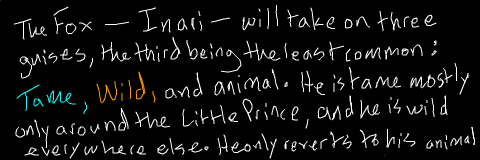 The Fox — Inari — will take on three
guises, the third being the least common:
Tame, Wild, and animal. He is tame mostly
only around the Little Prince, and he is wild
everywhere else. He only reverts to his animal